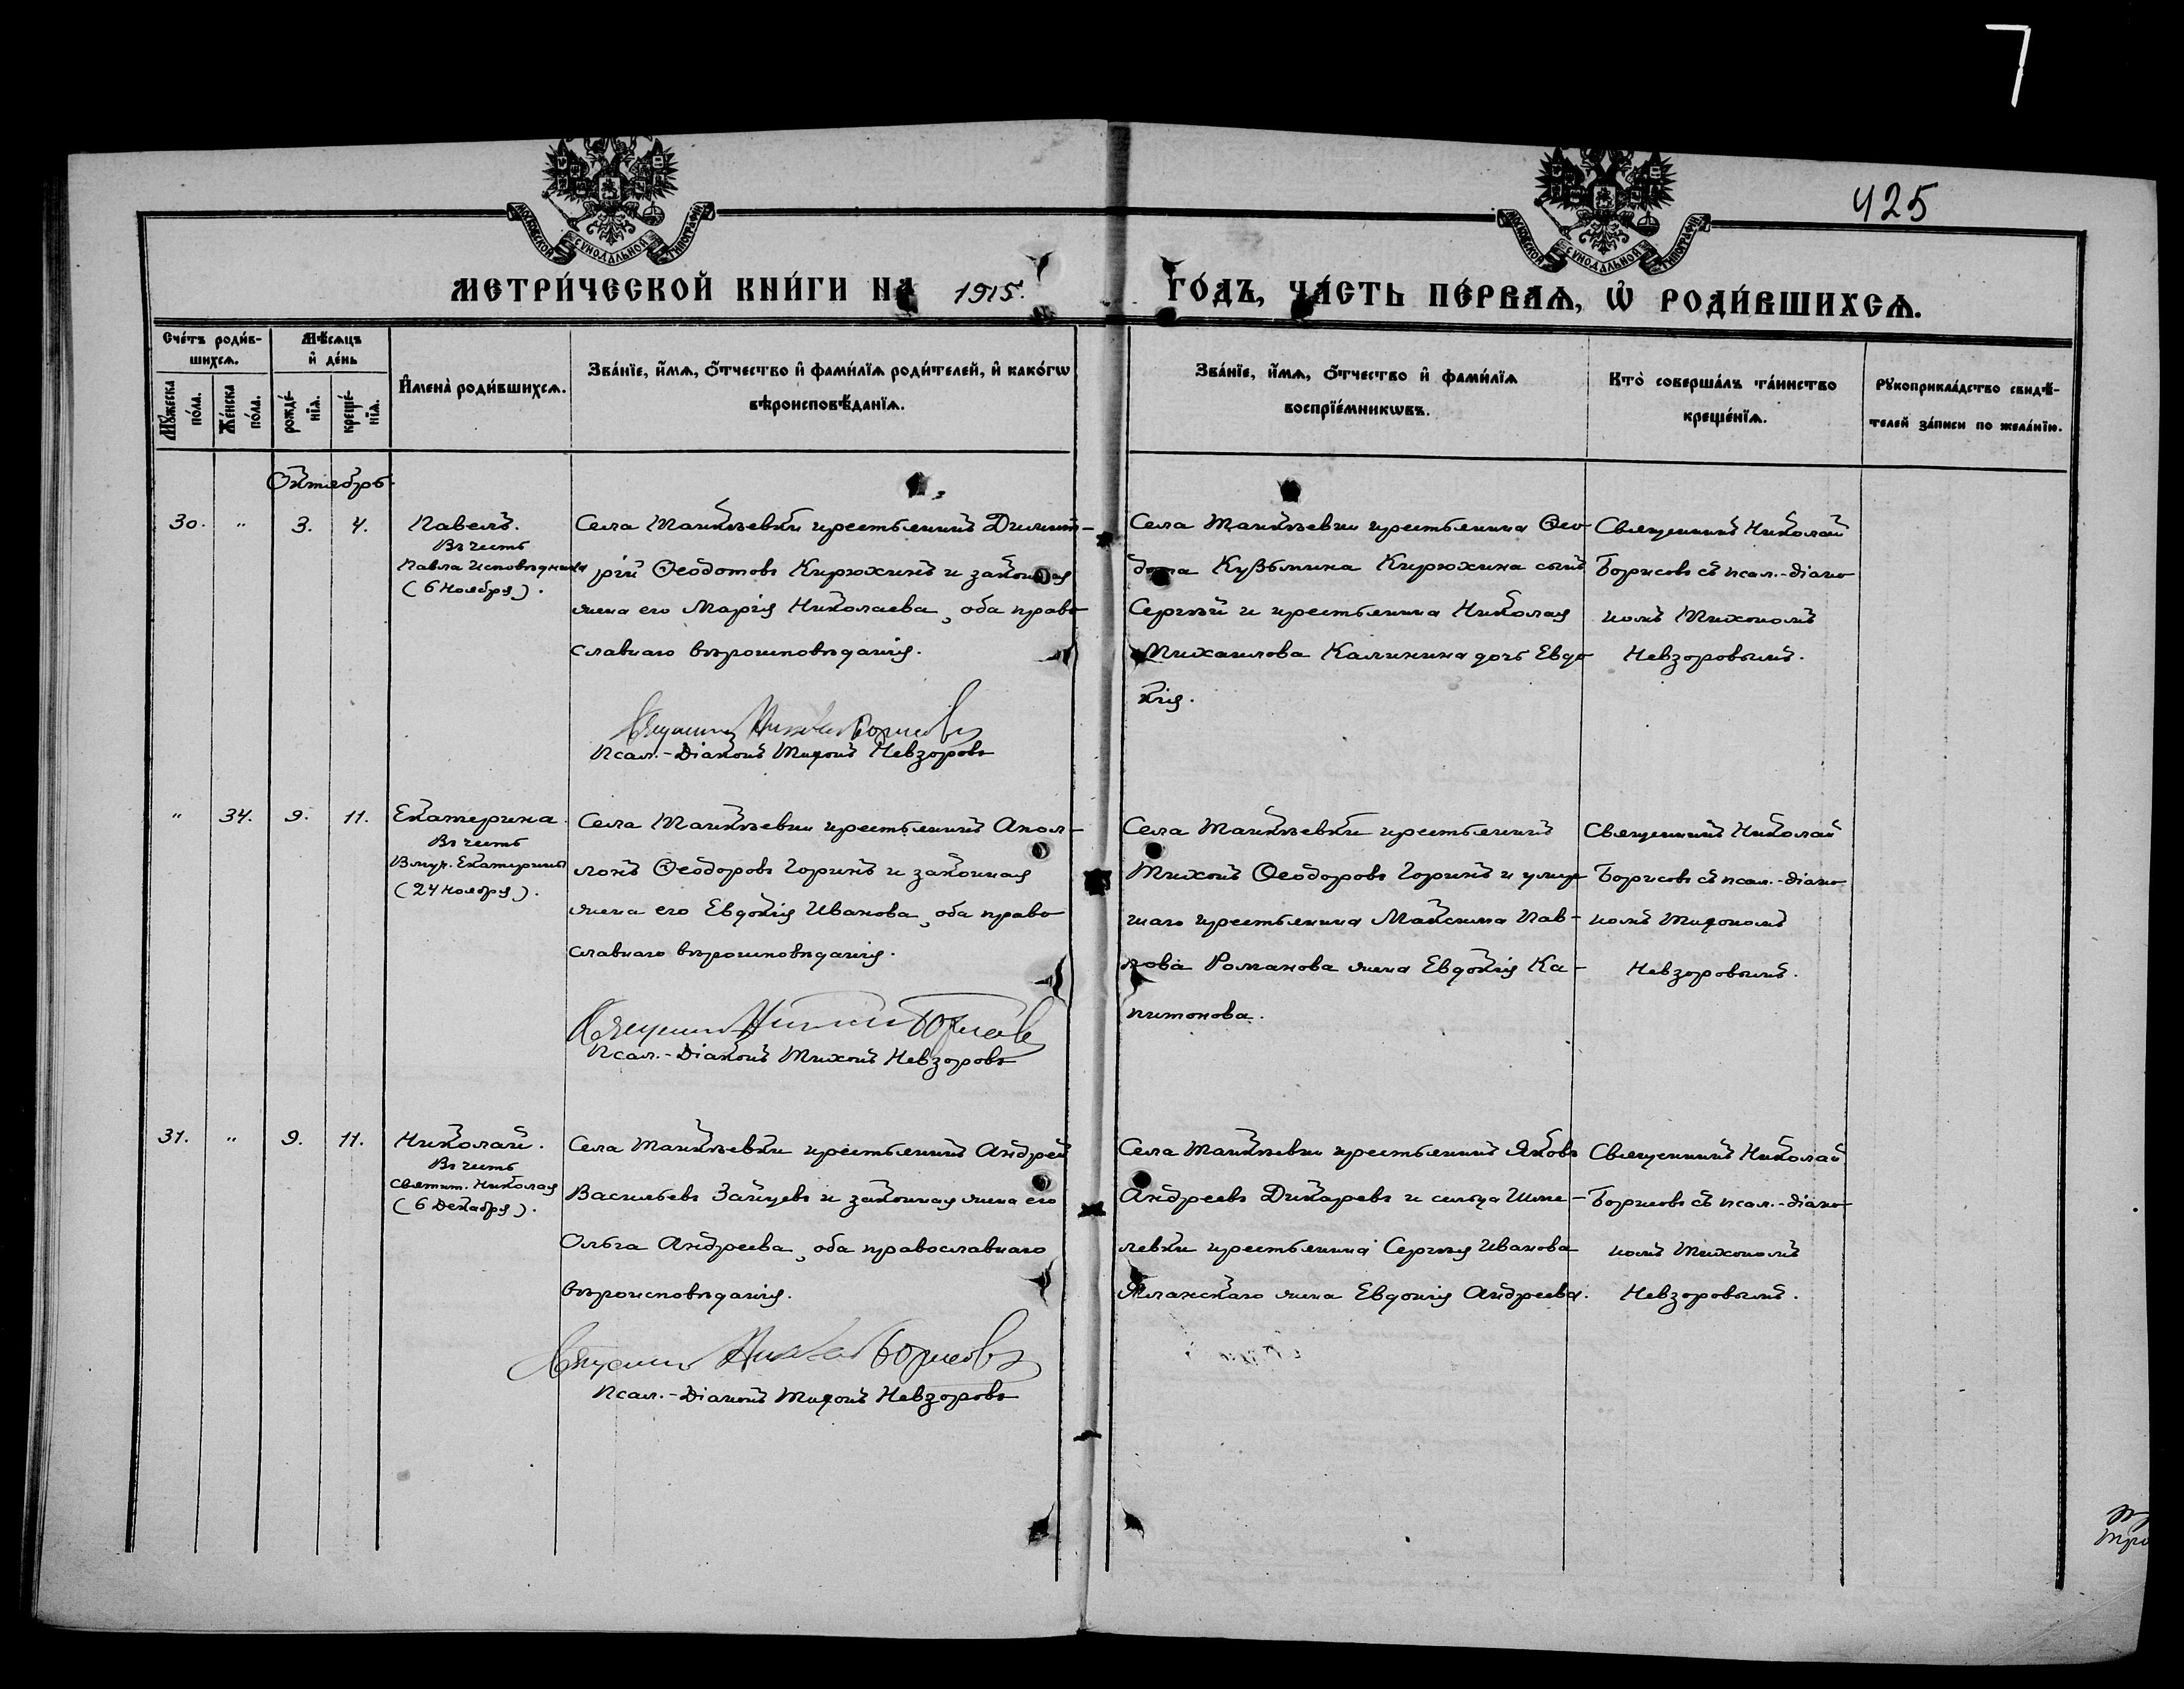 7
425
МОСКОВСКОЙ СѴНОДАЛЬНОЙ ТИПОГРАФІИ
МОСКОВСКОЙ СѴНОДАЛЬНОЙ ТИПОГРАФІИ
МЕТРИ́ЧЕСКОЙ КНИ́ГИ НА 1915.
ГО́ДЪ, ЧА́СТЬ ПЕ́РВАѦ, Ѡ҆ РОДИ́ВШИХСѦ.
Сче́тъ роди́в-
шихсѧ.
Мꙋ́жеска по́ла.
Же́нска по́ла.
Мѣ́сѧцъ
и҆ де́нь
рожде́-
нїѧ.
креще́-
нїѧ.
И҆мена̀ роди́вшихсѧ.
Зва́нїе, и҆́мѧ, ѻ҆́тчество и҆ фами́лїѧ роди́телей, и҆ како́гѡ
вѣроисповѣ́данїѧ.
Зва́нїе, и҆́мѧ, ѻ҆́тчество и҆ фами́лїѧ
воспрїе́мникѡвъ.
Кто̀ соверша́лъ та́инство
креще́нїѧ.
Рꙋкоприкла́дство свидѣ́-
телей за́писи по жела́нїю.
Октябрь
30.
"
3.
4.
Павелъ.
Въ честь
Павла Исповѣдника
(6 Ноября).
Села Танкѣевки крестьянинъ Димит-
рій Ѳеодотовъ Кирюхинъ и законная
жена его Марія Николаева, оба право
славнаго вѣроисповѣданія.
Священникъ Николай Борисовъ
Псал.-Діаконъ Тихонъ Невзоровъ
Села Танкѣевки крестьянина Ѳео
дота Кузьмина Кирюхина сынъ
Сергѣй и крестьянина Николая
Михаилова Калинина дочь Евдо
кія.
Священникъ Николай
Борисовъ съ псал.-діако
номъ Тихономъ
Невзоровымъ.
"
34.
9.
11.
Екатерина.
Въ честь
Вмуч. Екатерины
(24 ноября).
Села Танкѣевки крестьянинъ Апол-
лонъ Ѳеодоровъ Горинъ и законная
жена его Евдокія Иванова, оба право
славнаго вѣроисповѣданія.
Священникъ Николай Борисовъ
Псал.-Діаконъ Тихонъ Невзоровъ
Села Танкѣевки крестьянинъ
Тихонъ Ѳеодоровъ Горинъ и умер
шаго крестьянина Максима Пав-
лова Романова жена Евдокія Ка-
питонова.
Священникъ Николай
Борисовъ съ псал.-діако
номъ Тихономъ
Невзоровымъ.
31.
"
9.
11.
Николай.
Въ честь
Святит. Николая
(6 Декабря).
Села Танкѣевки крестьянинъ Андрей
Васильевъ Зайцевъ и законная жена его
Ольга Андреева, оба православнаго
вѣроисповѣданія.
Священникъ Николай Борисовъ
Псал.-Діаконъ Тихонъ Невзоровъ
Села Танкѣевки крестьянинъ Яковъ
Андреевъ Дикаревъ и сельца Шме-
левки крестьянина Сергѣя Иванова
жена Евдокія Андреева.
Священникъ Николай
Борисовъ съ псал.-діако
номъ Тихономъ
Невзоровымъ.